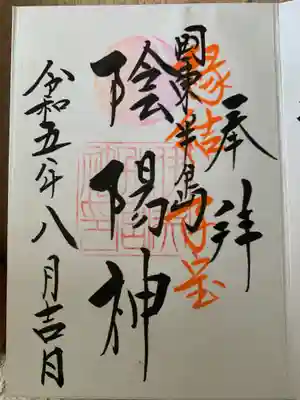 奉拝
縁結守宝
国東半島
陰陽神
令和五年八月吉日